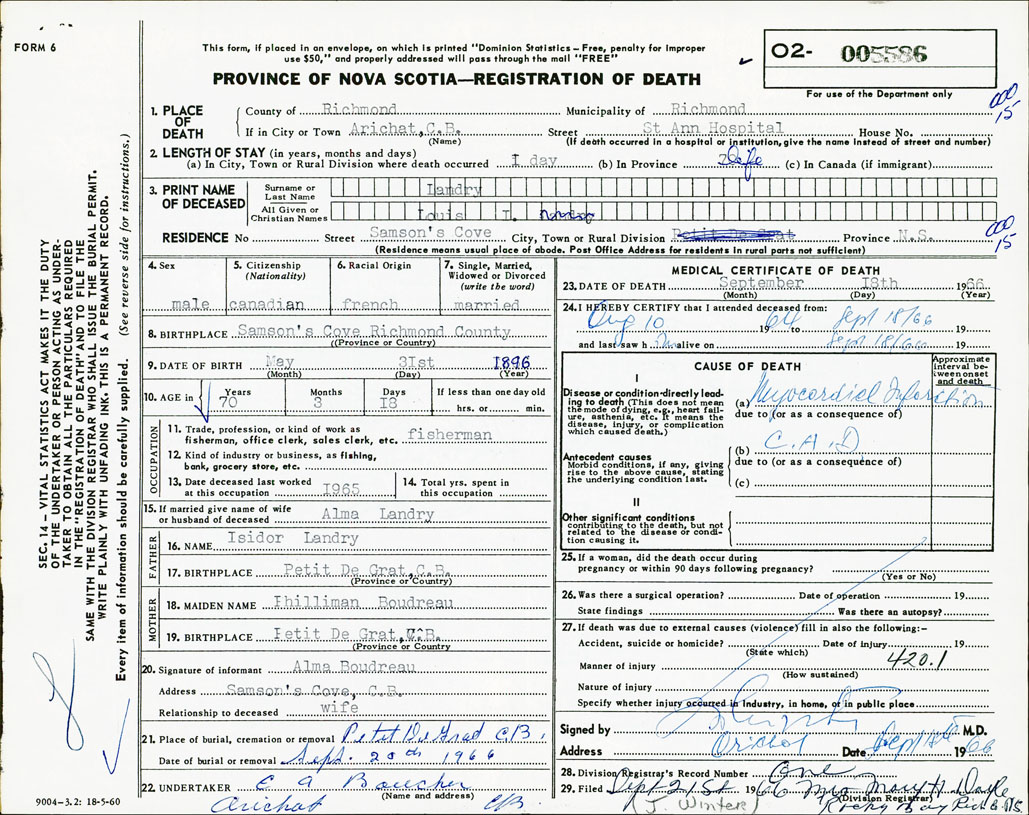 FORM 6
This form, if placed in an envelope, on which is printed "Dominion Statistics – Free, penalty for improper
use $50," and properly addressed will pass through the mail "FREE"
PROVINCE OF NOVA SCOTIA—REGISTRATION OF DEATH
O2- 005586
For use of the Department only
000
15
1. PLACE OF DEATH
County of Richmond Municipality of Richmond
If in City or Town Arichat, C.B. Street St Ann Hospital House No.
(Name) (If death occurred in a hospital or institution, give the name instead of street and number)
2. LENGTH OF STAY (in years, months and days)
(a) In City, Town or Rural Division where death occurred I day (b) In Province Life (c) In Canada (if immigrant)
3. PRINT NAME OF DECEASED
Surname or Last Name Landry
All Given or Christian Names Louis I.
000
15
RESIDENCE No Street Samson's Cove City, Town or Rural Division Petit De Grat Province N.S.
(Residence means usual place of abode. Post Office Address for residents in rural parts not sufficient)
4. Sex male
5. Citizenship (Nationality) canadian
6. Racial Origin french
7. Single, Married, Widowed or Divorced (write the word) married
8. BIRTHPLACE Samson's Cove Richmond County
(Province or County)
9. DATE OF BIRTH May 3Ist 1896
(Month) (Day) (Year)
10. AGE in Years 70 Months 3 Days I8 If less than one day old hrs. or min.
OCCUPATION
11. Trade, profession, or kind of work as
fisherman, office clerk, sales clerk, etc. fisherman
12. Kind of industry or business, as fishing,
bank, grocery store, etc.
13. Date deceased last worked
at this occupation I965
14. Total yrs. spent in
this occupation
15. If married give name of wife
or husband of deceased Alma Landry
FATHER
16. NAME Isidor Landry
17. BIRTHPLACE Petit De Grat, C.B.
(Province or Country)
MOTHER
18. MAIDEN NAME Ihilliman Boudreau
19. BIRTHPLACE Ietit De Grat, C.B.
(Province or Country)
20. Signature of informant Alma Boudreau
Address Samson's Cove, C.B.
Relationship to deceased wife
21. Place of burial, cremation or removal Petit De Grat C.B.
Date of burial or removal Sept. 20th 1966
22. UNDERTAKER C A Boucher
(Name and address)
Arichat CB
9004-3.2: 18-5-60
MEDICAL CERTIFICATE OF DEATH
23. DATE OF DEATH September I8th 1966
(Month) (Day) (Year)
24. I HEREBY CERTIFY that I attended deceased from:
Aug 10 1964 Sept 18/66 19
and last saw h im alive on Sept 18/66 19
CAUSE OF DEATH
Approximate interval between onset and death
I
Disease or condition directly leading to death (This does not mean the mode of dying, e.g., heart failure, asthenia, etc. It means the disease, injury, or complication which caused death.)
(a) Myocardial Infarction
due to (or as a consequence of)
(b) C.A.D
due to (or as a consequence of)
(c)
Antecedent causes
Morbid conditions, if any, giving rise to the above cause, stating the underlying condition last.
II
Other significant conditions
contributing to the death, but not related to the disease or condition causing it.
25. If a woman, did the death occur during
pregnancy or within 90 days following pregnancy?
(Yes or No)
26. Was there a surgical operation? Date of operation 19
State findings Was there an autopsy?
27. If death was due to external causes (violence) fill in also the following:–
Accident, suicide or homicide? Date of injury 19
(State which)
420.1
Manner of injury
(How sustained)
Nature of injury
Specify whether injury occurred in Industry, in home, or in public place
Signed by M.D.
Address Arichat Date Sept 18th 1966
28. Division Registrar's Record Number One
29. Filed Sept 21st 1966 Mrs Mary H Doyle
(Division Registrar)
(J Winter) Rocky Bay Rich Co N.S.
SEC. 14 – VITAL STATISTICS ACT MAKES IT THE DUTY
OF THE UNDERTAKER OR PERSON ACTING AS UNDER-
TAKER TO OBTAIN ALL THE PARTICULARS REQUIRED
IN THE "REGISTRATION OF DEATH" AND TO FILE THE
SAME WITH THE DIVISION REGISTRAR WHO SHALL ISSUE THE BURIAL PERMIT.
WRITE PLAINLY WITH UNFADING INK. THIS IS A PERMANENT RECORD.
Every item of information should be carefully supplied. (See reverse side for instructions.)